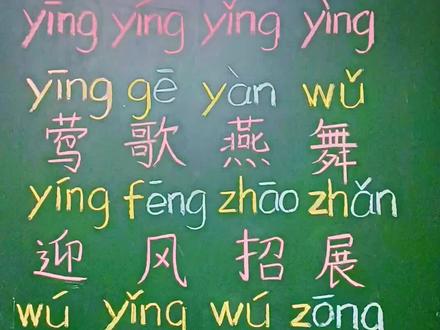 yīng yíng yǐng yìng
yīng gē yàn wǔ
莺 歌 燕 舞
yíng fēng zhāo zhǎn
迎 风 招 展
wú yǐng wú zōng